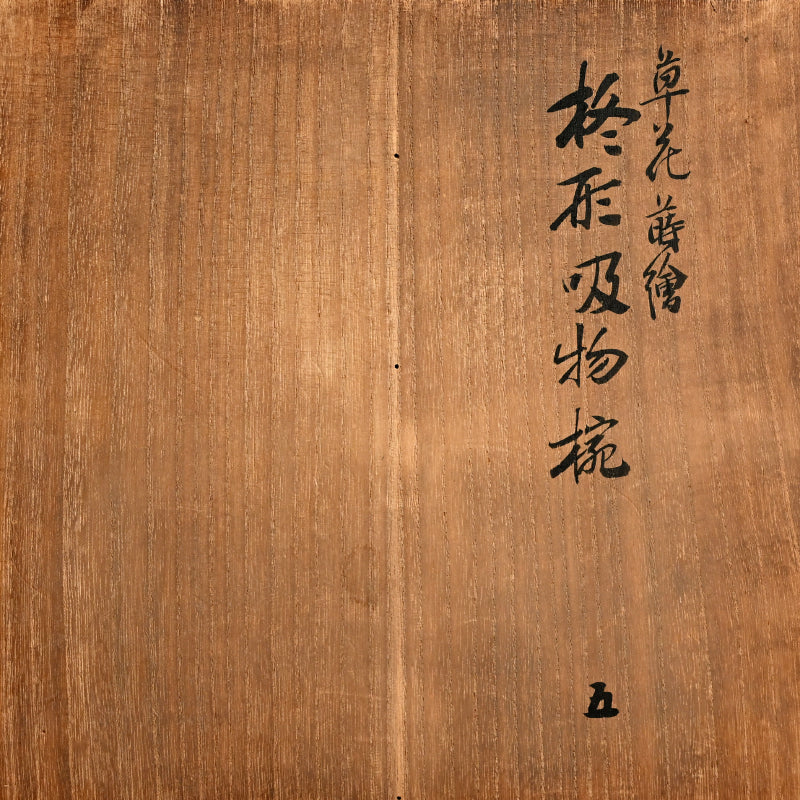 草花蒔繪
柊形吸物椀
五